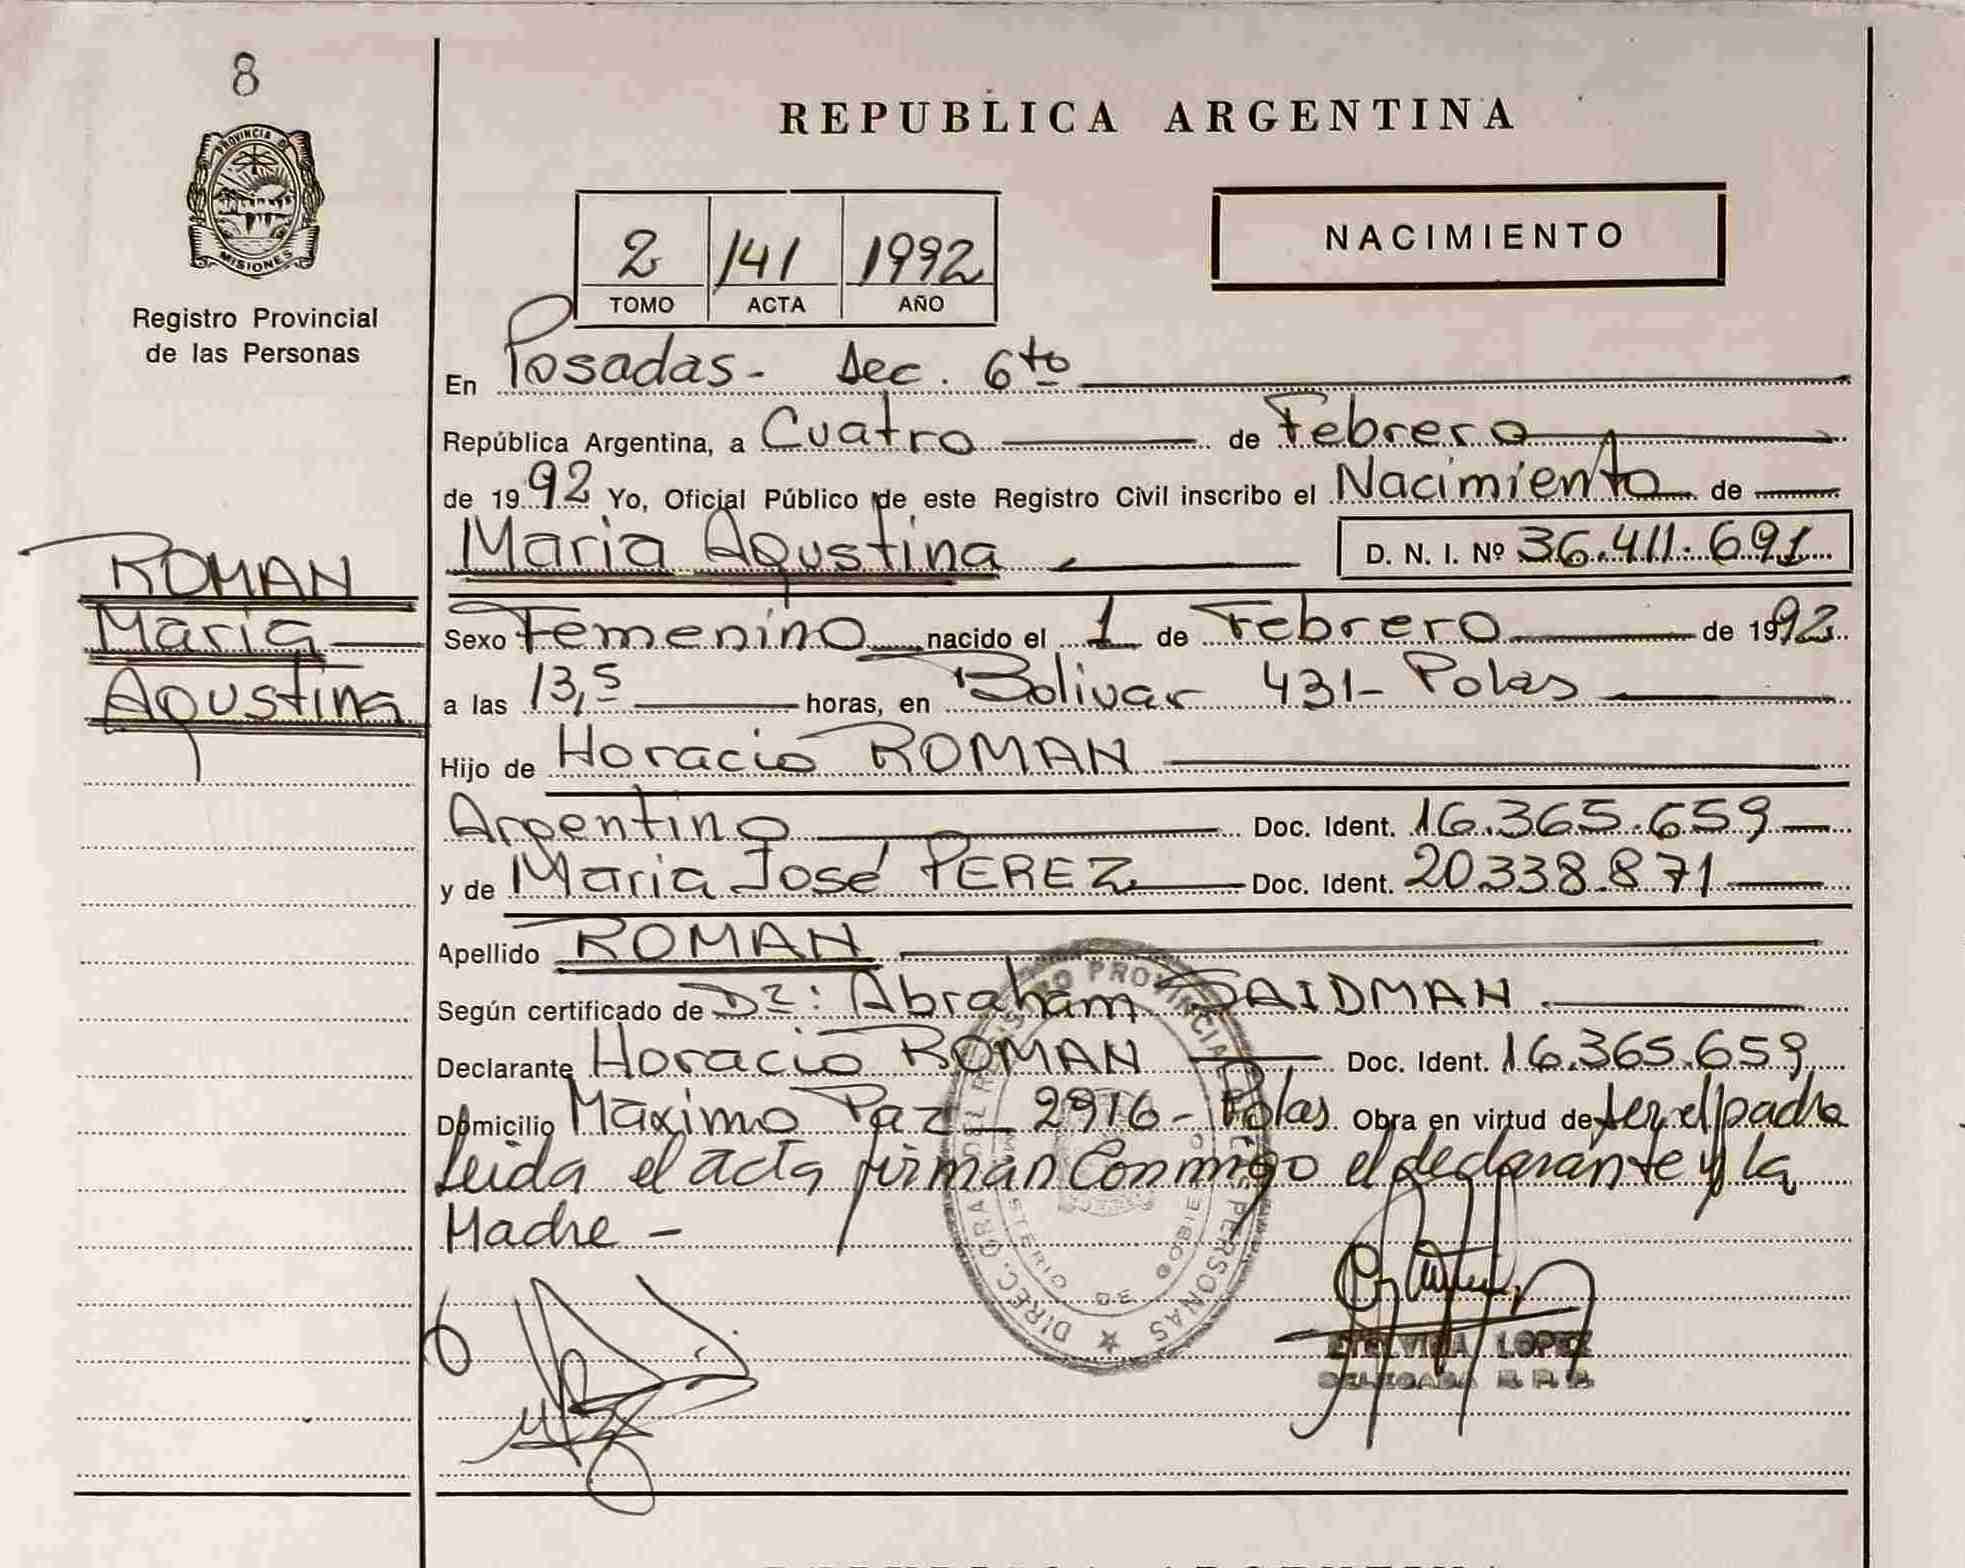 8
PROVINCIA DE
MISIONES
Registro Provincial
de las Personas
ROMAN
Maria
Agustina
REPUBLICA ARGENTINA
NACIMIENTO
2 141 1992
TOMO ACTA AÑO
En Posadas - Sec. 6to
República Argentina, a Cuatro de Febrero
de 1992 Yo, Oficial Público de este Registro Civil inscribo el Nacimiento de
Maria Agustina D. N. I. Nº 36.411.691
Sexo Femenino nacido el 1 de Febrero de 1992
a las 13,5 horas, en Bolivar 431 - Pdas
Hijo de Horacio ROMAN
Argentino Doc. Ident. 16.365.659
y de Maria José PEREZ Doc. Ident. 20.338.871
Apellido ROMAN
Según certificado de Dr: Abraham SAIDMAN
Declarante Horacio ROMAN Doc. Ident. 16.365.659
Domicilio Maximo Paz 2916 - Pdas Obra en virtud de ser el padre
Leida el acta firman Conmigo el declarante y la
Madre -
DIREC. GRAL REGISTRO PROVINCIAL DE PERSONAS
MINISTERIO DE GOBIERNO
ETELVINA LOPEZ
DELEGADA R.P.P.